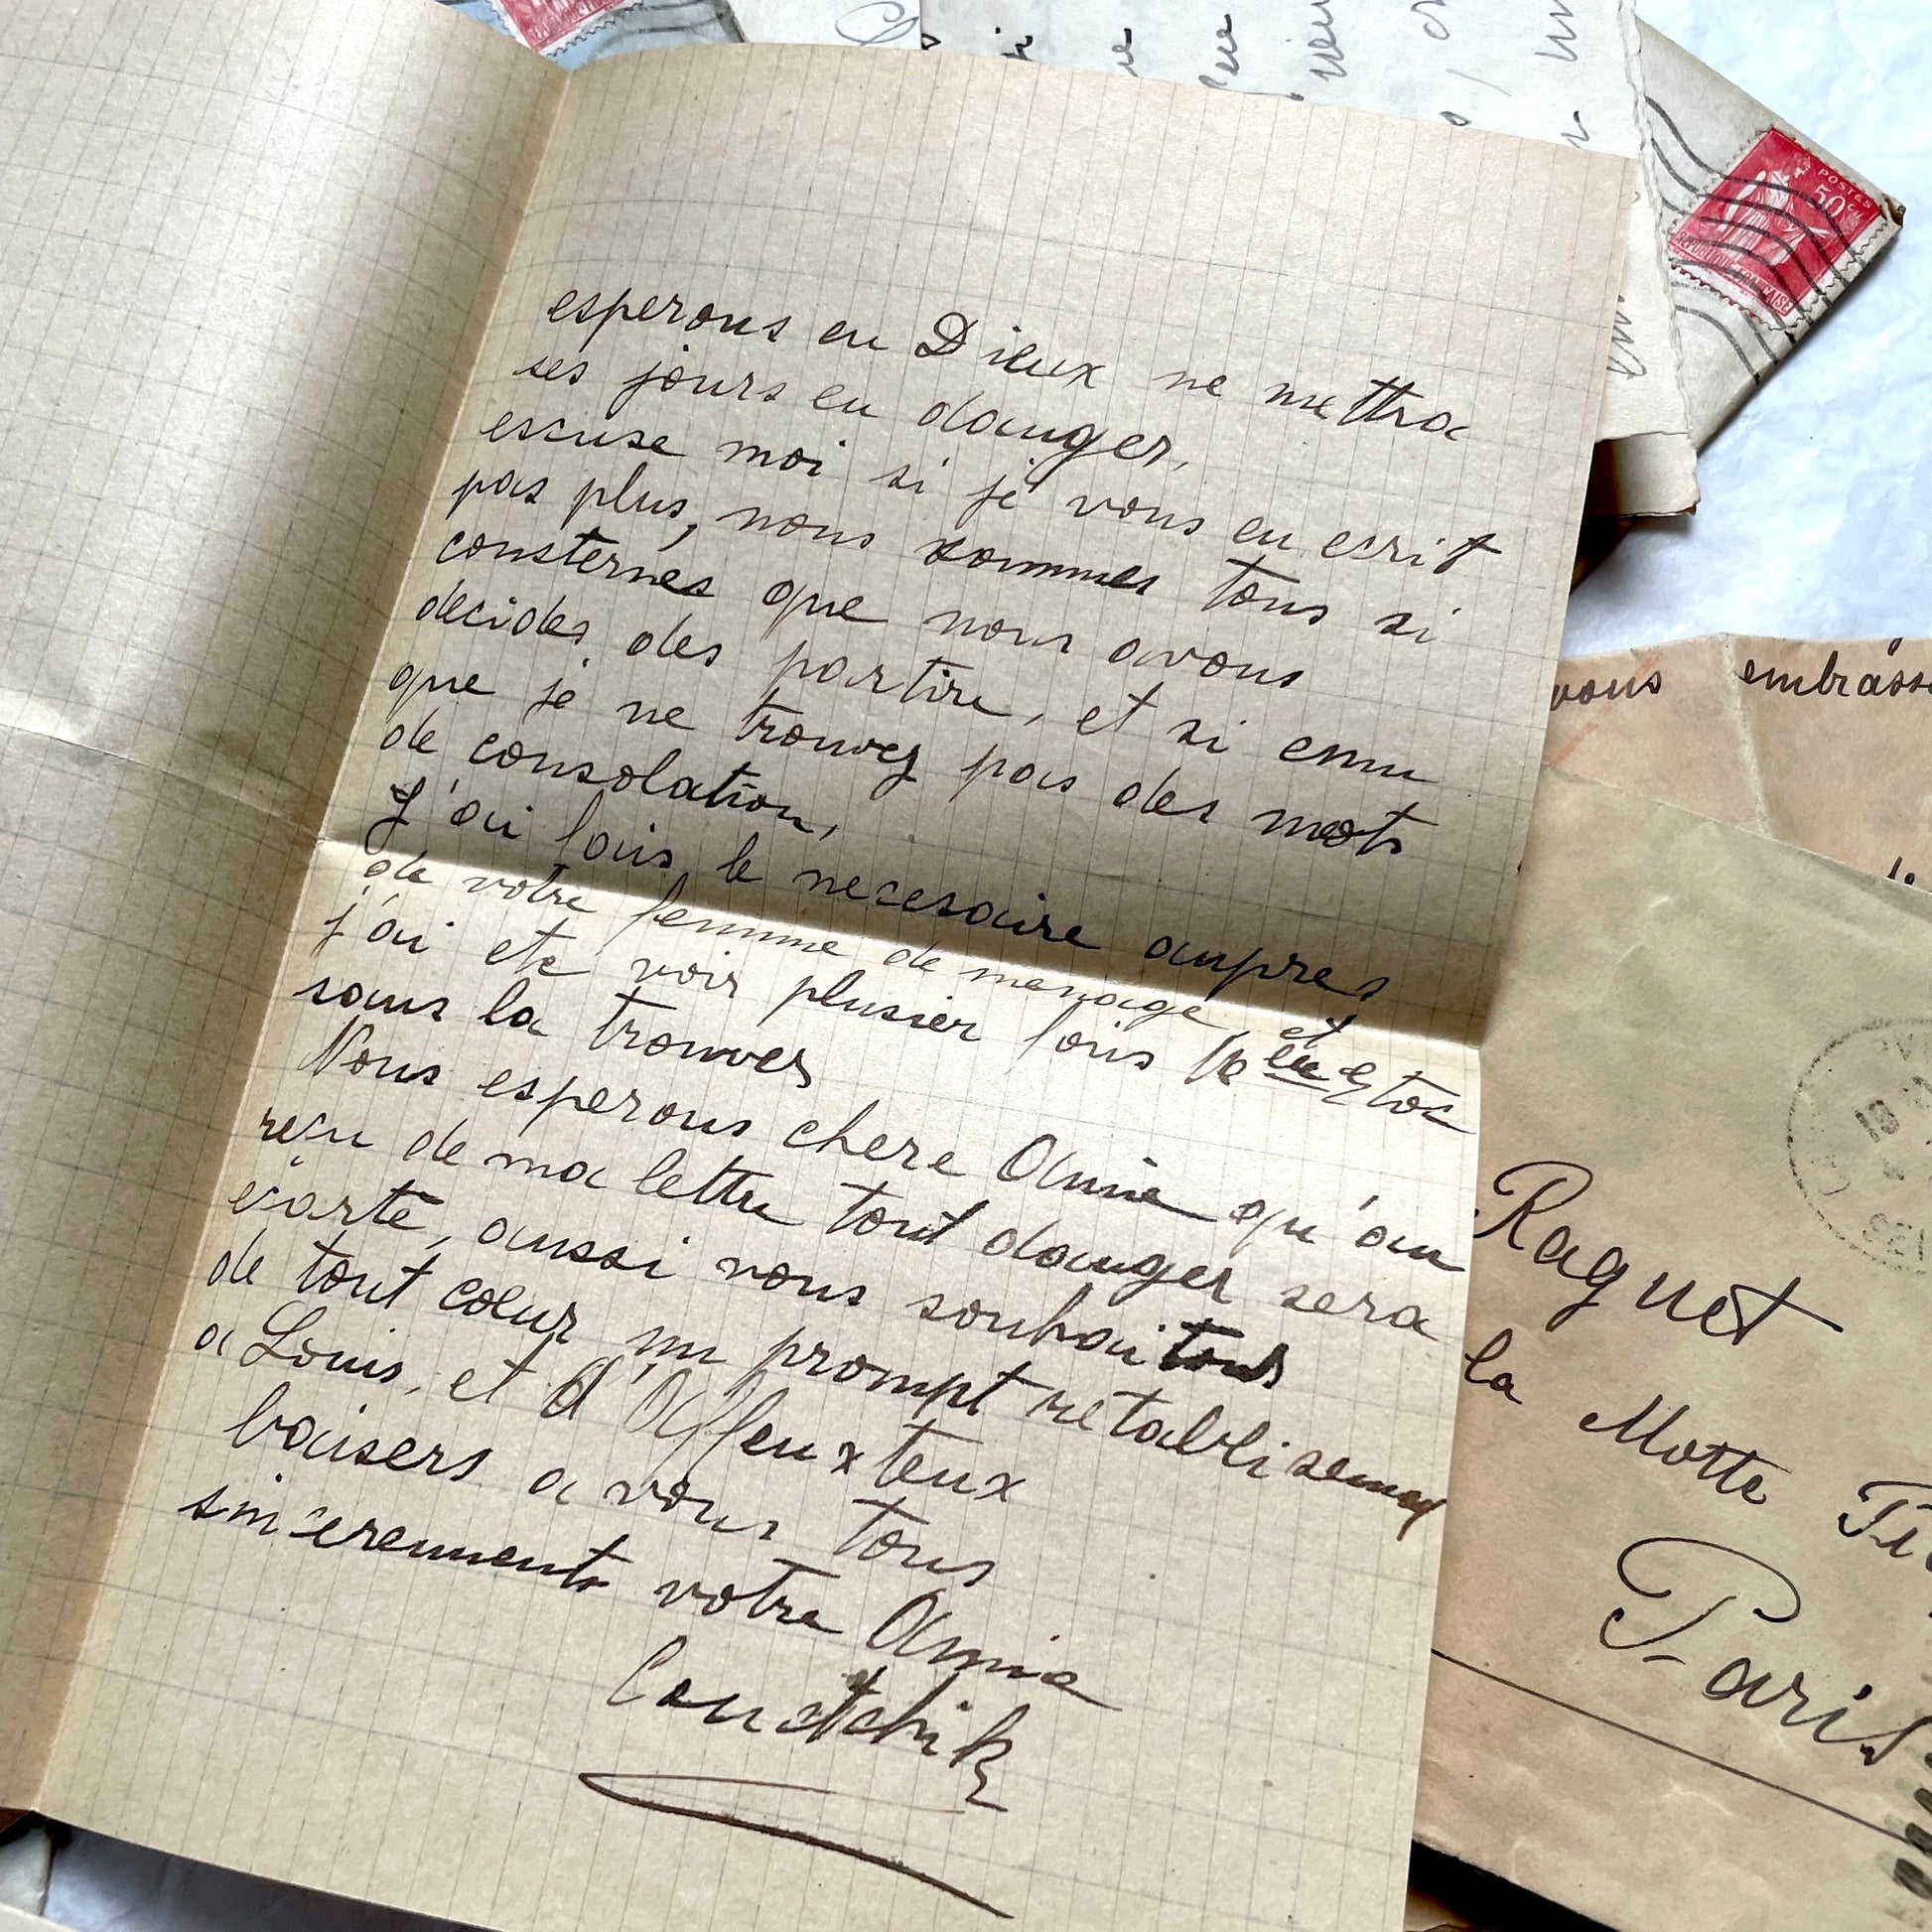 esperons en Dieux ne mettra
ses jours en danger,
escuse moi si je vous en ecrit
pas plus, nous sommes tous si
consternés que nous avons
decides des partire, et si emu
que je ne trouvez pas des mots
de consolation,
J'ai fais le necesaire aupres
de votre femme de menage, et
j'ai ete voir plusier fois Mme
sans la trouver
Nous esperons chere Amie qu'au
reçu de ma lettre tout danger sera
écarté, aussi vous souhaitons
de tout coeur un prompt retablisement
a Louis, et d'Affeuxteux
baisers a vous tous
sincerennents votre Amie
POSTES
50c
REPUBLIQUE FRANÇAISE
vous embrasse
Raquet
la Motte
Paris